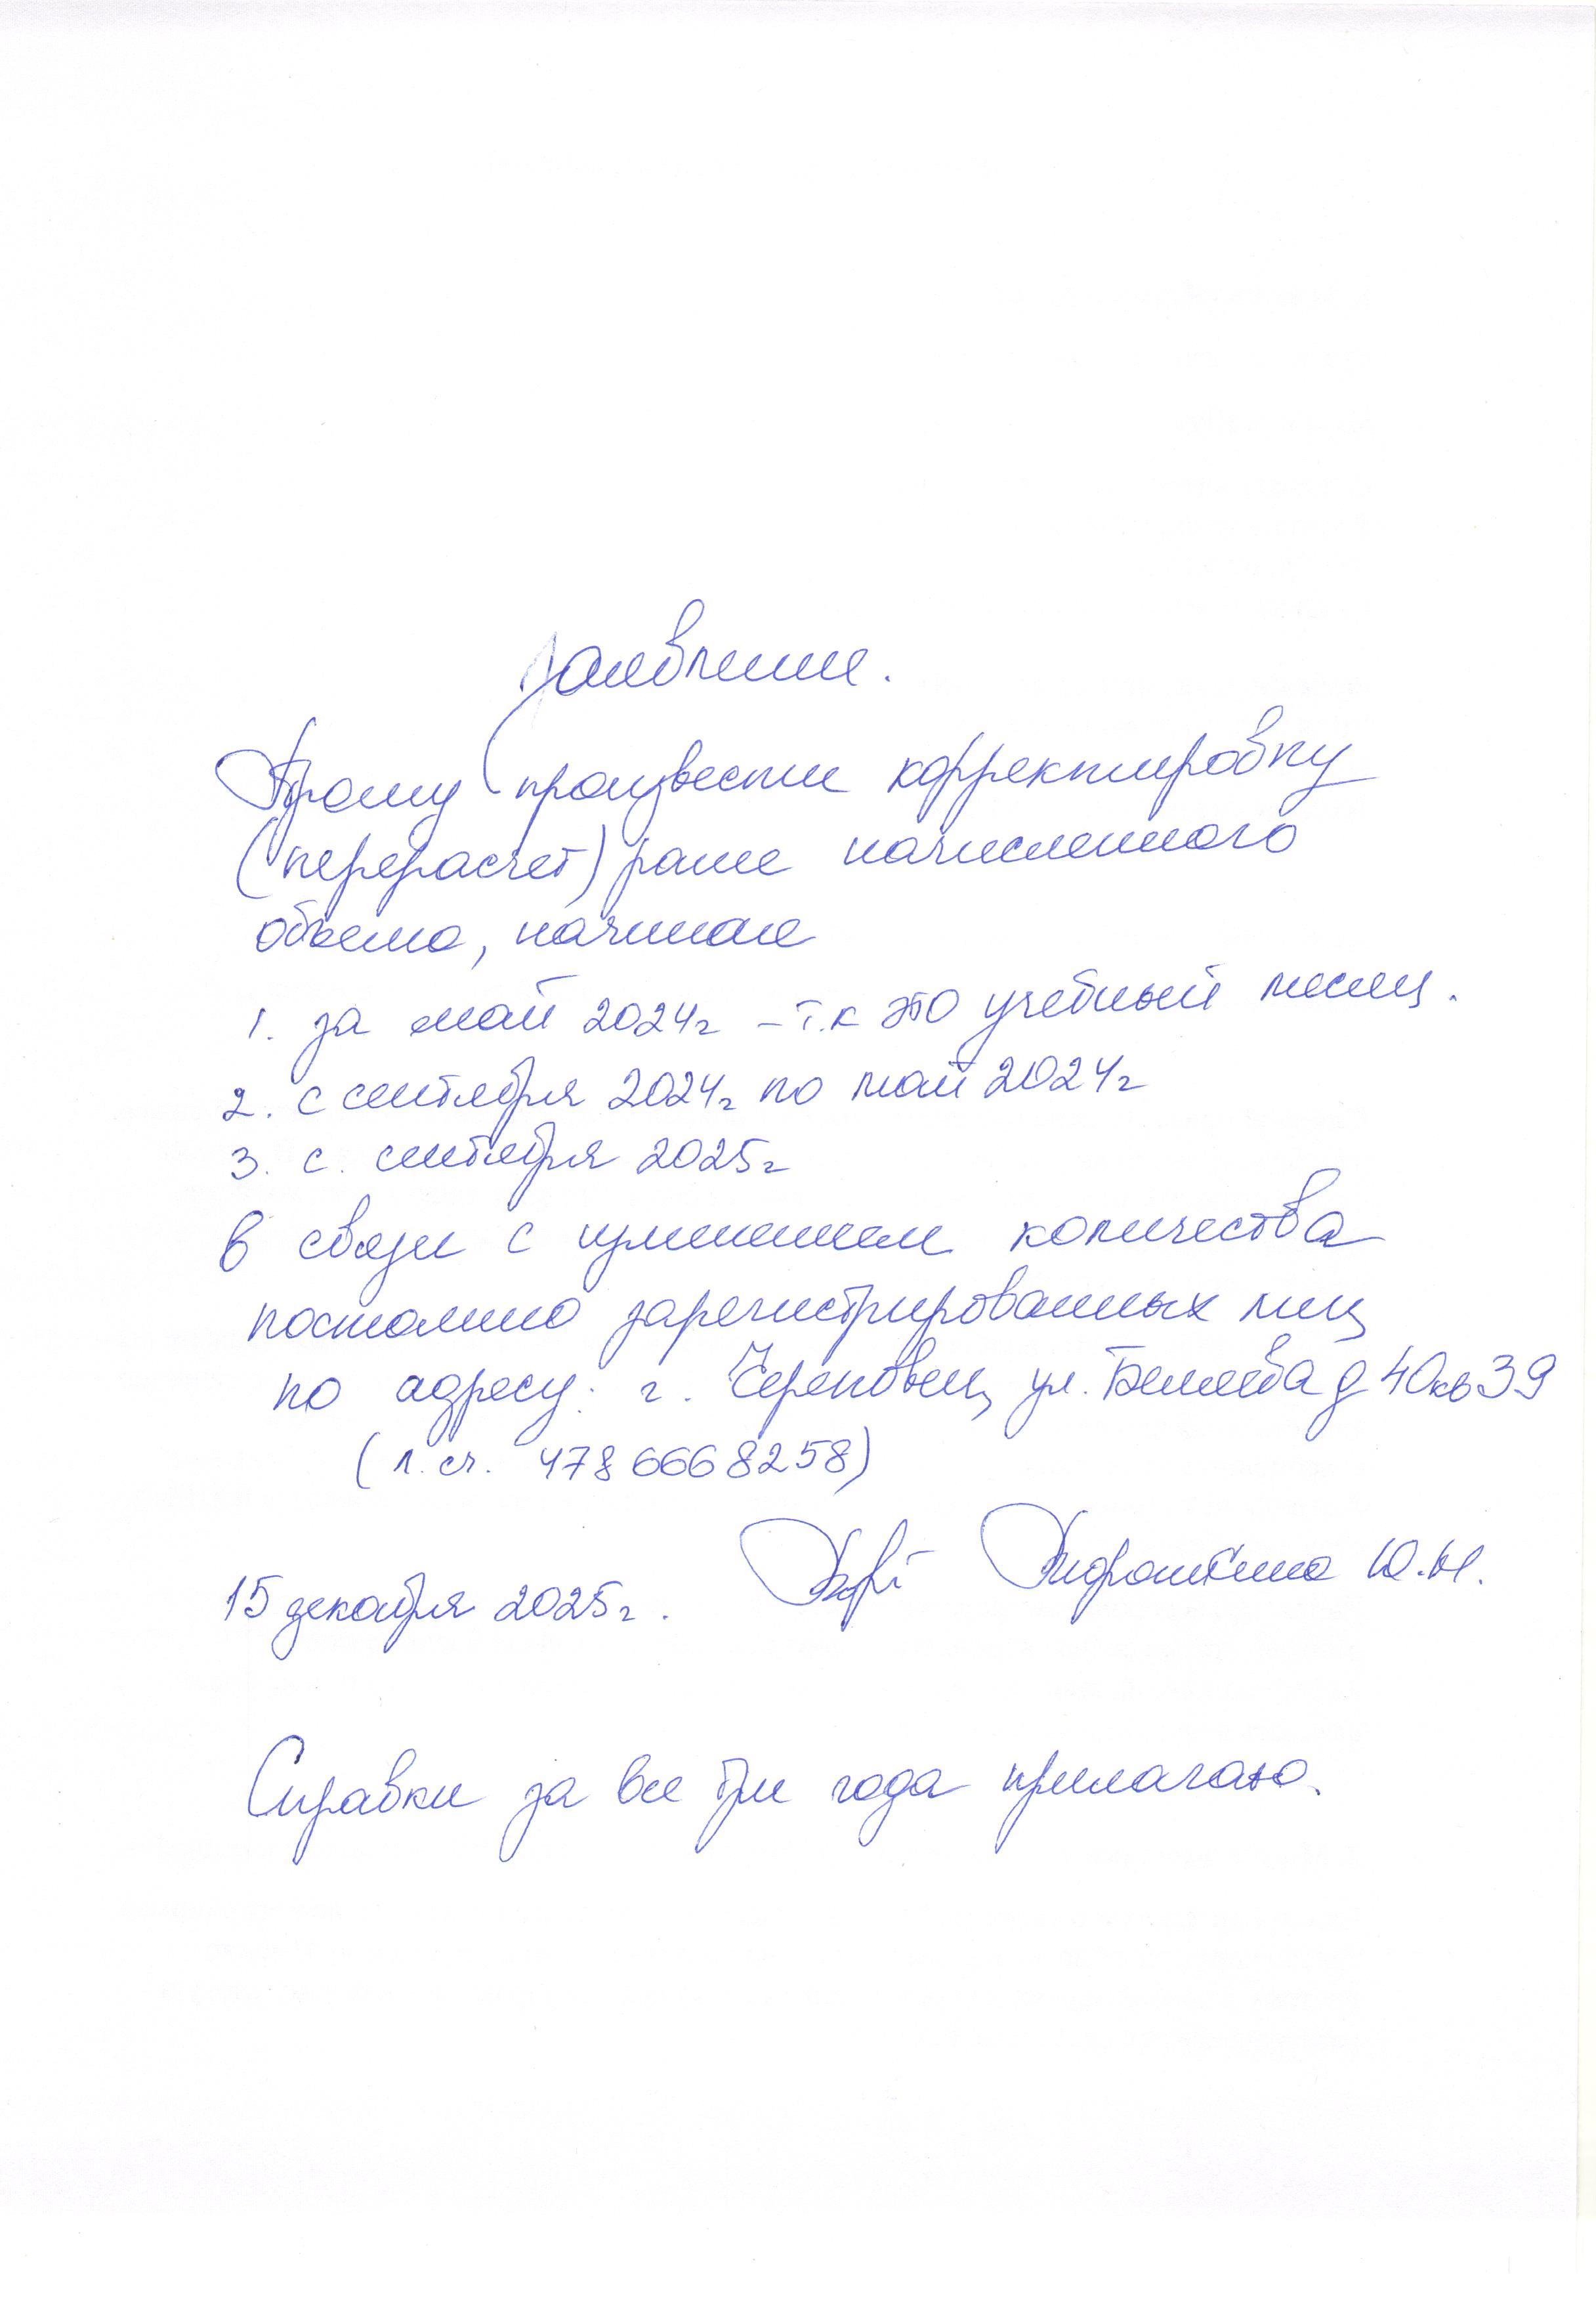 Заявление.
Прошу произвести корректировку
(перерасчет) ранее начисленного
объема, начиная
1. за май 2024г – т.к это учебный месяц.
2. с сентября 2024г по май 2024г
3. с. сентября 2025г
в связи с изменением количества
постоянно зарегистрированных лиц
по адресу: г. Череповец, ул. д 40 кв 39
(л. сч. 4786668258)
15 декабря 2025г. Ю.Н.
Справки за все три года прилагаю.